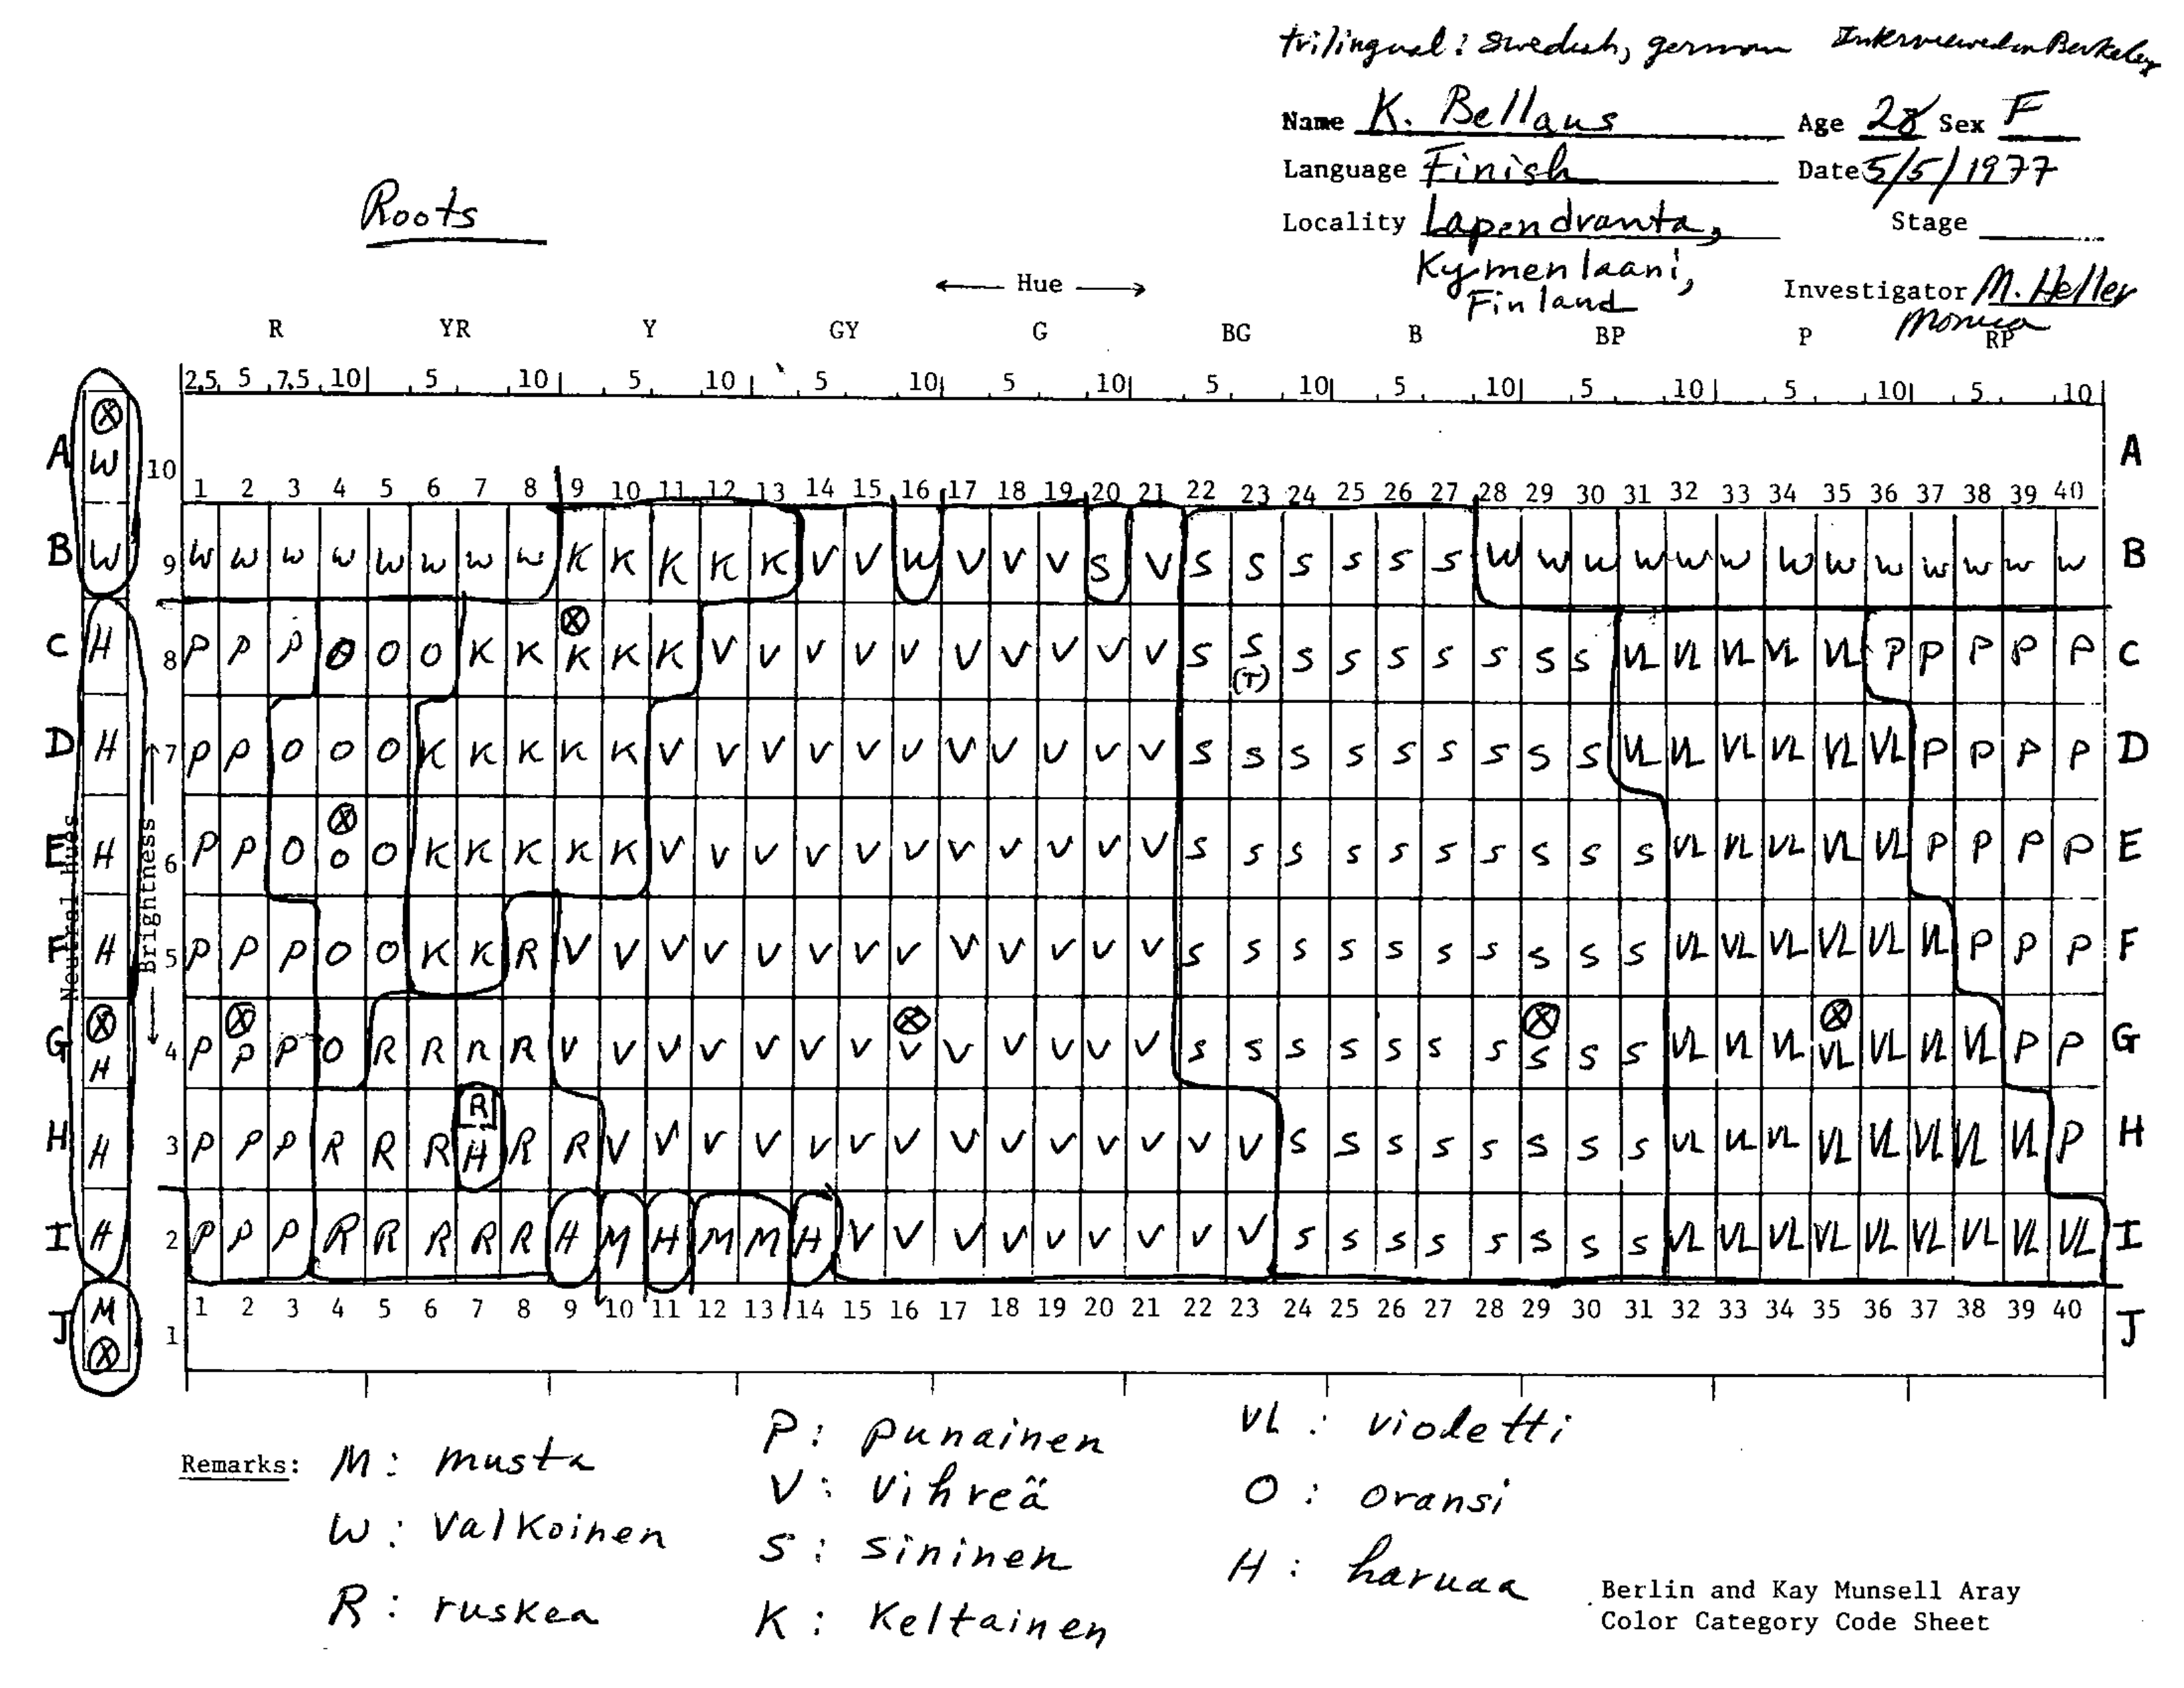 trilingual: Swedish, german Interviewed in Berkeley
Name K. Bellaus Age 28 Sex F
Language Finish Date 5/5/1977
Roots
Locality Lapendranta, Stage
Kymenlaani,
Finland
← Hue →
Investigator M. Heller
Monica
R YR Y GY G BG B BP P RP
2.5 5 7.5 10 5 10 5 10 5 10 5 10 5 10 5 10 5 10 5 10 5 10
A W 10 A
1 2 3 4 5 6 7 8 9 10 11 12 13 14 15 16 17 18 19 20 21 22 23 24 25 26 27 28 29 30 31 32 33 34 35 36 37 38 39 40
B W 9 W W W W W W W W K K K K K V V W V V V S V S S S S S S W W W W W W W W W W W W W B
C H 8 P P P O O O K K K K K V V V V V V V V V V S S S S S S S S S VL VL VL VL VL P P P P P C
(T)
D H 7 P P O O O K K K K K V V V V V V V V V V V S S S S S S S S S VL VL VL VL VL VL P P P P D
E H 6 P P O O O K K K K K V V V V V V V V V V V S S S S S S S S S S VL VL VL VL VL P P P P E
F H 5 P P P O O K K R V V V V V V V V V V V V V S S S S S S S S S S VL VL VL VL VL VL P P P F
G H 4 P P P O R R R R V V V V V V V V V V V V V S S S S S S S S S S VL VL VL VL VL VL VL P P G
R
H H 3 P P P R R R H R R V V V V V V V V V V V V V V S S S S S S S S VL VL VL VL VL VL VL VL P H
I H 2 P P P R R R R R H M H M M H V V V V V V V V V S S S S S S S S VL VL VL VL VL VL VL VL VL I
J M 1 J
1 2 3 4 5 6 7 8 9 10 11 12 13 14 15 16 17 18 19 20 21 22 23 24 25 26 27 28 29 30 31 32 33 34 35 36 37 38 39 40
Neutral Hues
← Brightness →
Remarks: M: musta
W: Valkoinen
R: ruskea
P: punainen
V: Vihreä
S: sininen
K: Keltainen
VL: violetti
O: oransi
H: haruaa
Berlin and Kay Munsell Aray
Color Category Code Sheet